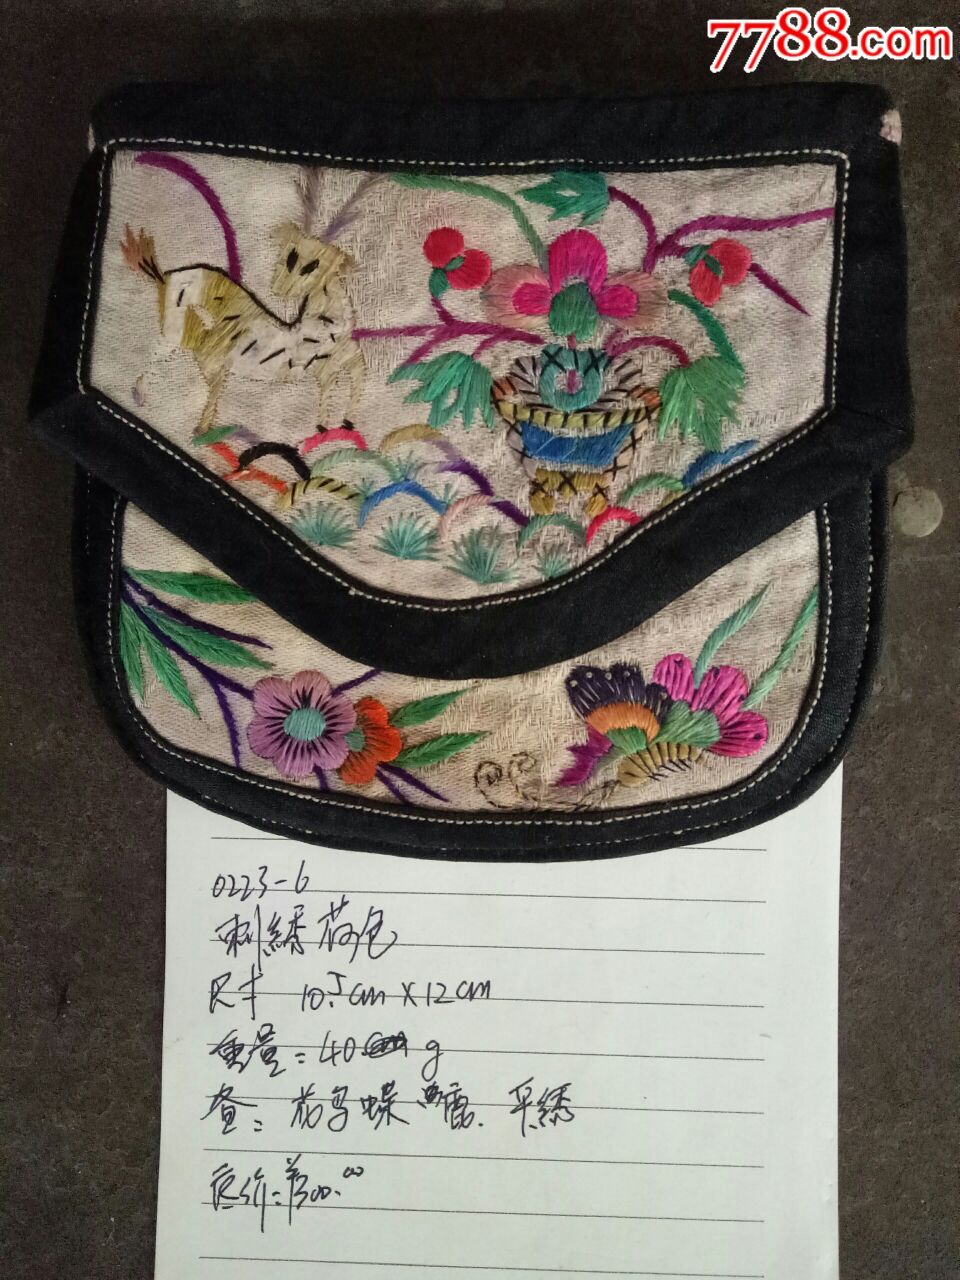 7788.com
0223-6
刺綉荷包
尺寸 10.5cm X 12cm
重量:40 g
查:花鸟蝶 鹿.平綉
底价:¥300.00